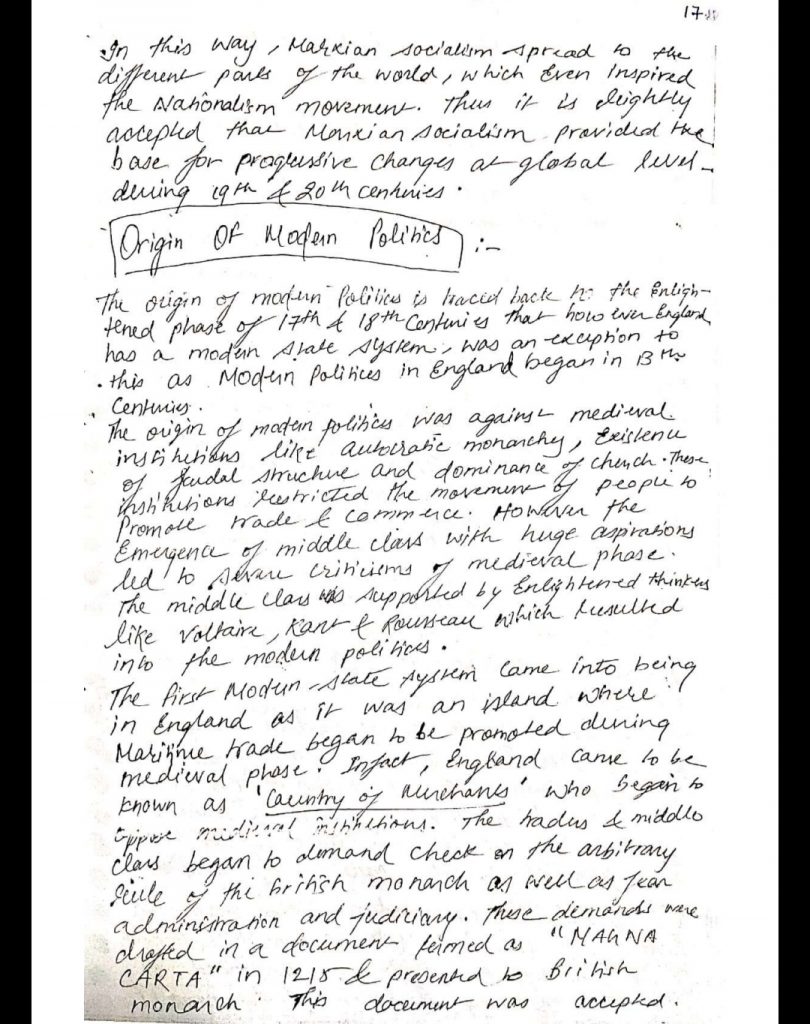 17
In this way, Marxian socialism spread to the
different parts of the world, which Even Inspired
the Nationalism movement. Thus it is slightly
accepted that Marxian socialism provided the
base for progressive changes at global level
during 19th & 20th centuries.
Origin Of Modern Politics :-
The origin of modern Politics is traced back to the Enligh-
tened phase of 17th & 18th Centuries that however England
has a modern state system, was an exception to
this as Modern Politices in England began in 13th
Centuries.
The origin of modern politics was against medieval
institutions like autocratic monarchy, Existence
of feudal structure and dominance of church. These
institutions restricted the movement of people to
Promote trade & Commerce. However the
Emergence of middle class with huge aspirations
led to severe criticisms of medieval phase.
The middle class was supported by Enlightened thinkers
like Voltaire, Kant & Rousseau which resulted
into the modern politics.
The first Modern-state system came into being
in England as it was an island where
Maritime trade began to be promoted during
medieval phase. Infact, England came to be
known as 'Country of Merchants' who began to
oppose medieval institutions. The trades & middle
class began to demand check on the arbitrary
rule of the british monarch as well as fear
administration and judiciary. These demands were
drafted in a document termed as "MAGNA
CARTA" in 1215 & presented to British
monarch. This document was accepted.